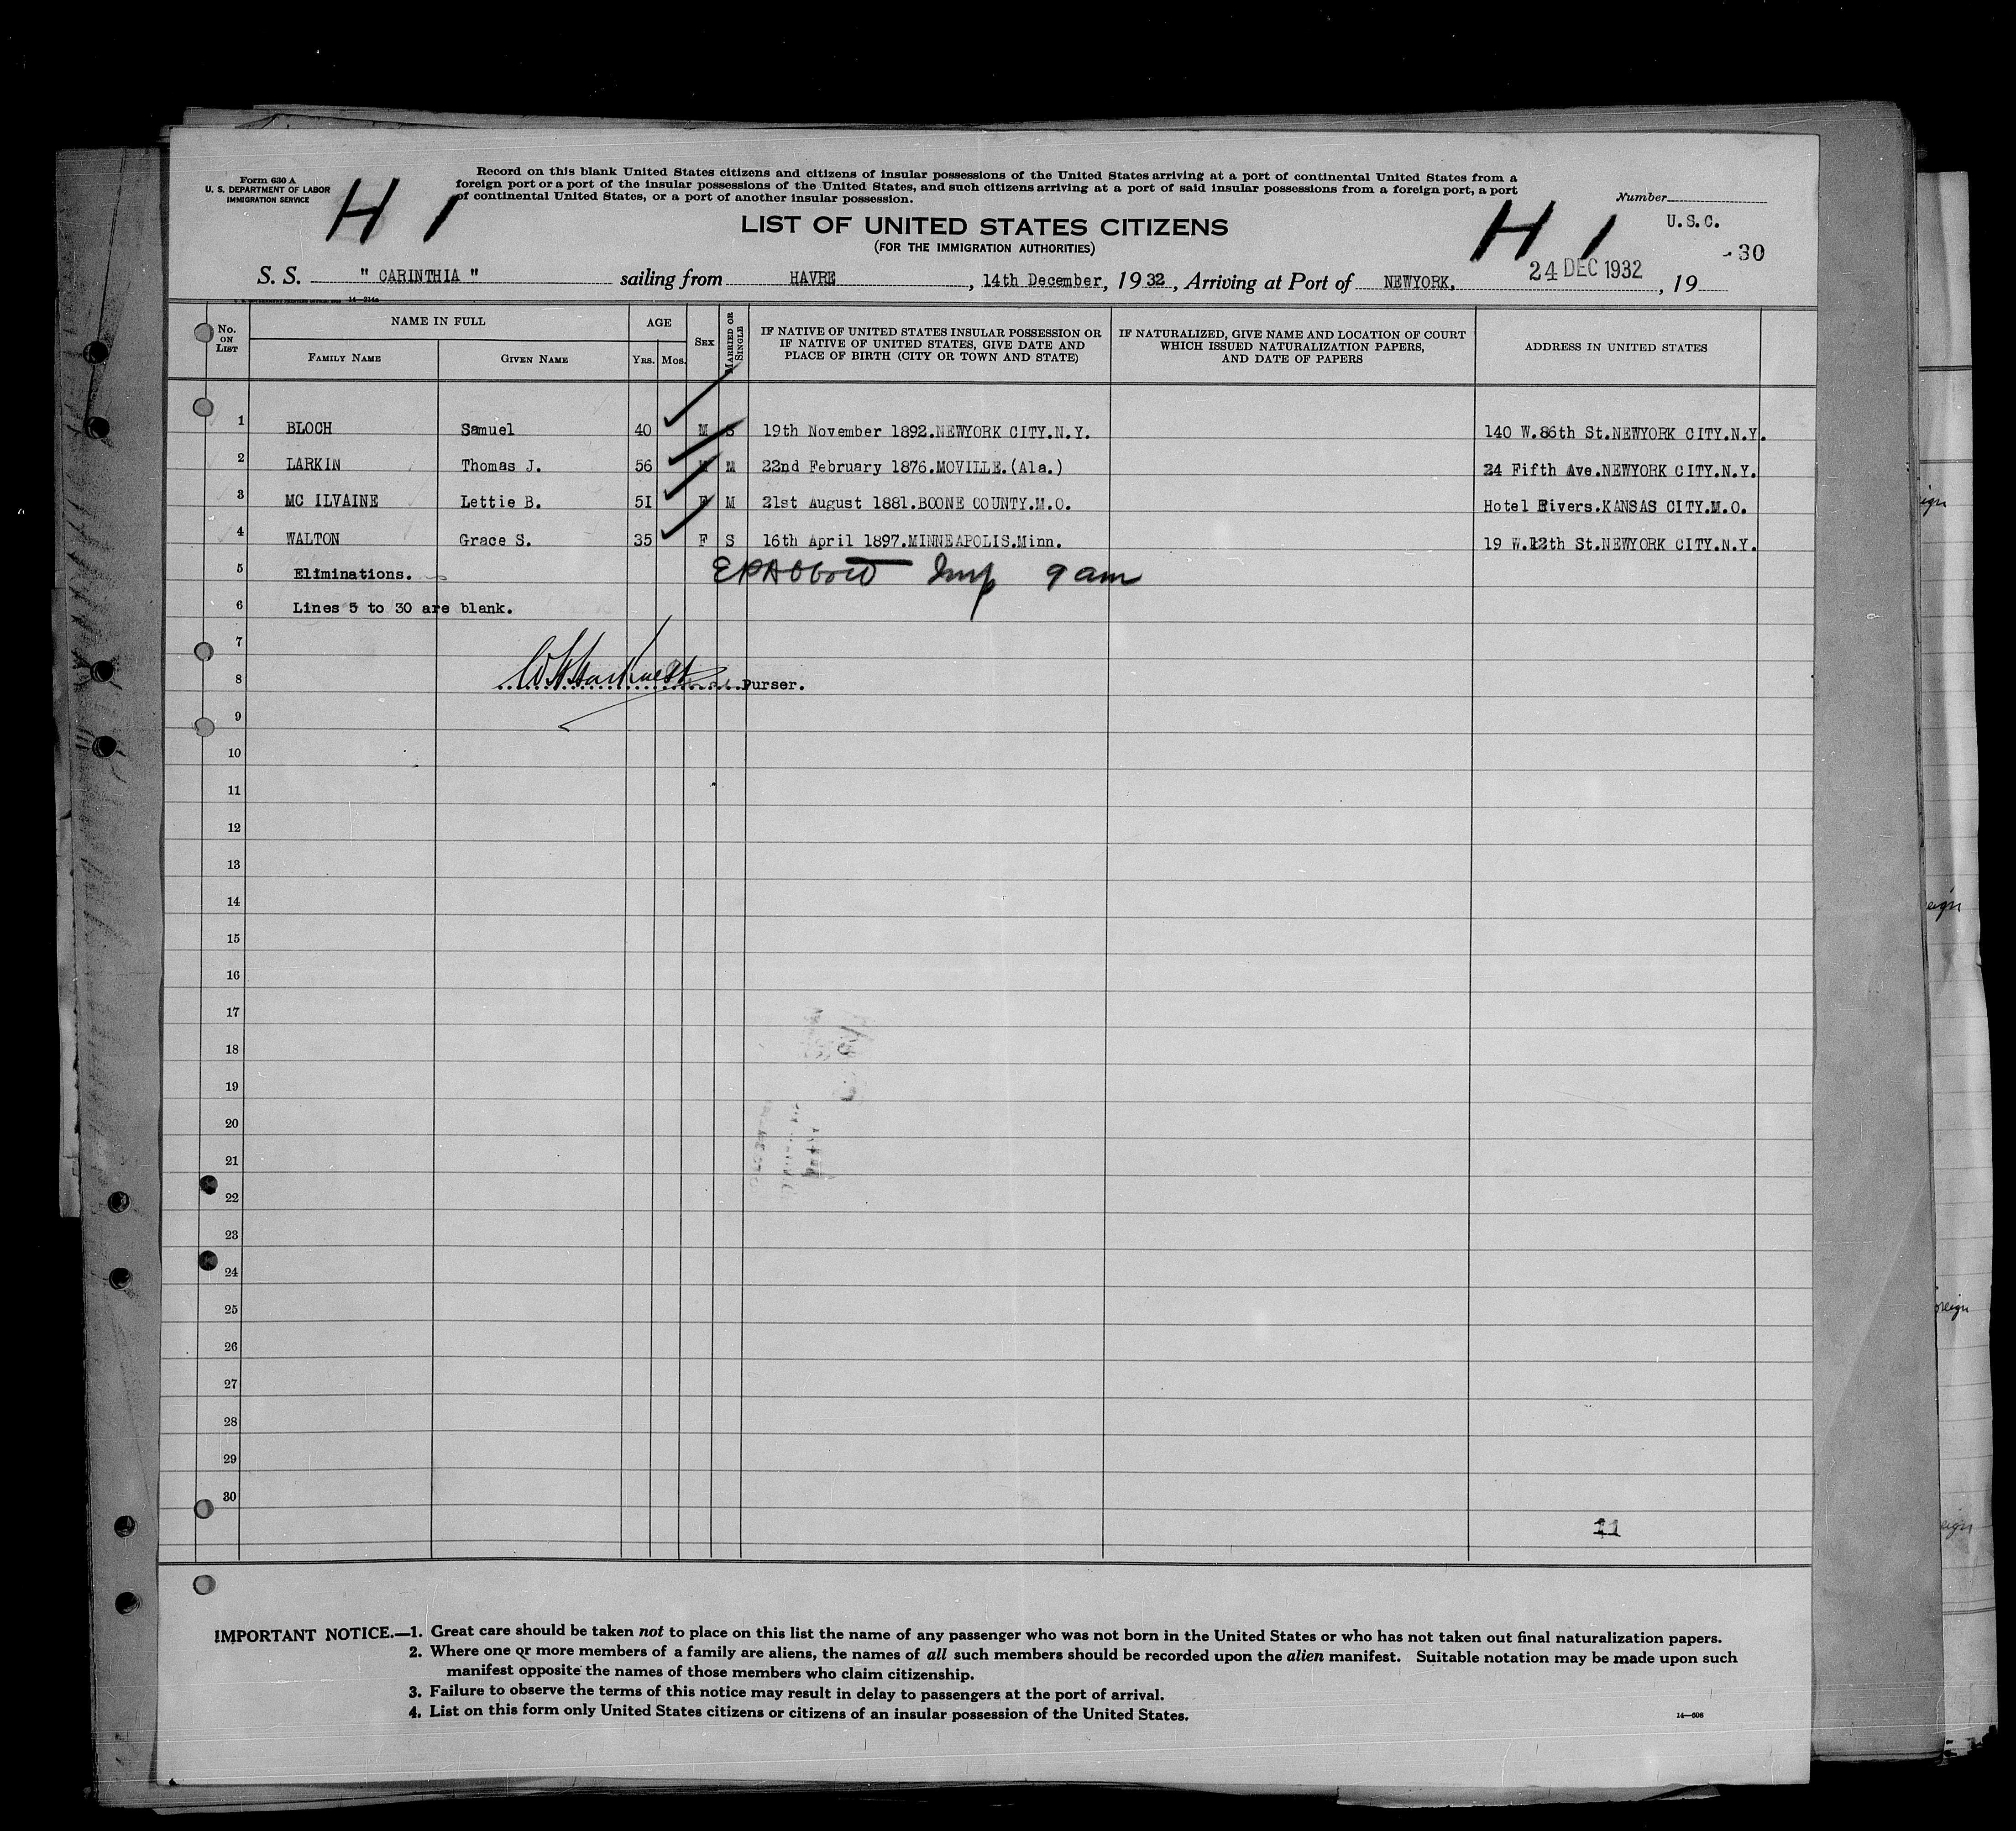 Form 630 A
U. S. DEPARTMENT OF LABOR
IMMIGRATION SERVICE
H 1
Record on this blank United States citizens and citizens of insular possessions of the United States arriving at a port of continental United States from a
foreign port or a port of the insular possessions of the United States, and such citizens arriving at a port of said insular possessions from a foreign port, a port
of continental United States, or a port of another insular possession.
Number
H 1
U.S.C.
LIST OF UNITED STATES CITIZENS
(FOR THE IMMIGRATION AUTHORITIES)
-30
S. S. " CARINTHIA " sailing from HAVRE, 14th December, 1932, Arriving at Port of NEWYORK. 24 DEC 1932, 19
14—214a
No. ON LIST
NAME IN FULL
FAMILY NAME
GIVEN NAME
AGE
YRS. MOS.
SEX
MARRIED OR SINGLE
IF NATIVE OF UNITED STATES INSULAR POSSESSION OR
IF NATIVE OF UNITED STATES, GIVE DATE AND
PLACE OF BIRTH (CITY OR TOWN AND STATE)
IF NATURALIZED, GIVE NAME AND LOCATION OF COURT
WHICH ISSUED NATURALIZATION PAPERS,
AND DATE OF PAPERS
ADDRESS IN UNITED STATES
1 BLOCH Samuel 40 M S 19th November 1892.NEWYORK CITY.N.Y. 140 W.86th St.NEWYORK CITY.N.Y.
2 LARKIN Thomas J. 56 M M 22nd February 1876.MOVILLE.(Ala.) 24 Fifth Ave.NEWYORK CITY.N.Y.
3 MC ILVAINE Lettie B. 51 F M 21st August 1881.BOONE COUNTY.M.O. Hotel Rivers.KANSAS CITY.M.O.
4 WALTON Grace S. 35 F S 16th April 1897.MINNEAPOLIS.Minn. 19 W.12th St.NEWYORK CITY.N.Y.
5 Eliminations. EPAbbott Insp 9 am
6 Lines 5 to 30 are blank.
7
8 Purser.
9
10
11
12
13
14
15
16
17
18
19
20
21
22
23
24
25
26
27
28
29
30
11
IMPORTANT NOTICE.—1. Great care should be taken not to place on this list the name of any passenger who was not born in the United States or who has not taken out final naturalization papers.
2. Where one or more members of a family are aliens, the names of all such members should be recorded upon the alien manifest. Suitable notation may be made upon such
manifest opposite the names of those members who claim citizenship.
3. Failure to observe the terms of this notice may result in delay to passengers at the port of arrival.
4. List on this form only United States citizens or citizens of an insular possession of the United States.
14—608